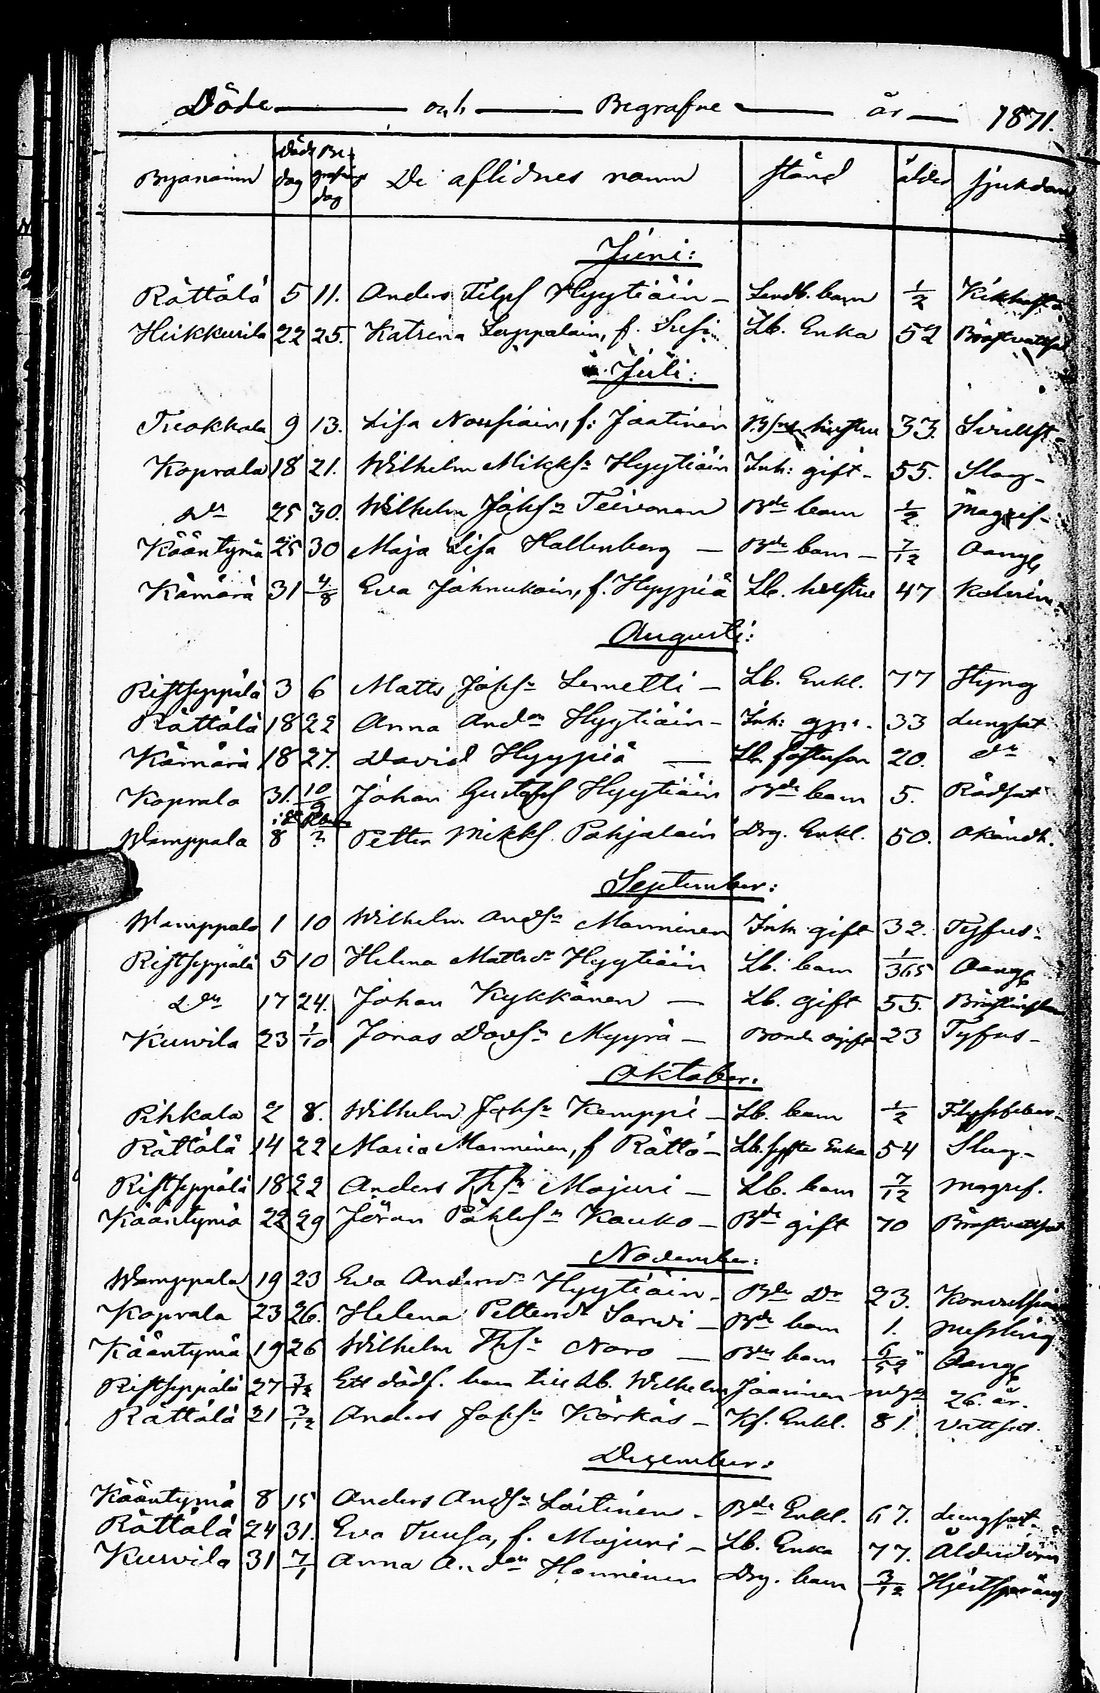 Döde och Begrafne år 1871.
Byanamn Döds dag Begrafnings dag De aflidnes namn Stånd ålder Sjukdom
Juni:
Rättälä 5 11. Anders Filpss Hyytiäin — Landb. barn 1/2 Kikhosta
Heikkurila 22 25. Katrina Lappalain, f. Susi Lb. Enka 52 Bröstvattsot
Juli:
Tuokkola 9 13. Lisa Nousiain, f: Jaatinen hustru 33.
Koprala 18 21. Wilhelm Mikkss: Hyytiäin Inh: gift - 55. Slag -
Do 25 30. Wilhelm Johss: Teivonen Bde barn 1/2 Magref -
Kääntymä 25 30 Maja Lisa Hallenberg — Bde barn — 7/12 Oangf
Kämärä 31 4/8 Eva Johnukain, f. Hyypiä Lb. hustru 47 Kolerin
Augusti:
Ristseppälä 3 6 Matts Johss: Lemetti — Lb. Enkl. 77 Styng
Rättälä 18 22 Anna Andsdr Hyytiäin — Inh: 33 Lungsot
Kämärä 18 27. David Hyypiä — Lb. fosterson 20. Do
Koprala 31. 10/9 Johan Gustafss Hyytiäin Bde barn 5. Rödsot
Wamppala 8 ? Petter Mikkss. Pohjalain Drg. Enkl. 50. Okändt.
September:
Wamppala 1 10 Wilhelm Andss: Manninen Inh. gift 32. Tyfus -
Ristseppälä 5 10 Helena Mattsdr Hyytiäin Lb. barn 1/365 Oangf
Do 17 24. Johan Kykkänen — Lb. gift 55.
Kurvila 23 1/10 Jonas Davss: Myyrä — Bonde ogift 23 Tyfus -
Oktober:
Pihkala 2 8. Wilhelm Johss: Kemppi — Lb. barn 1/2
Rättälä 14 22 Maria Manninen, f Rättö — Lb. Enka 54 Slag -
Ristseppälä 18 22 Anders Thss: Majuri — Lb. barn 7/12 Magref.
Kääntymä 22 29 Jöran Påhlss: Kauko — Bde gift 70 Bröstvattsot
November:
Wamppala 19 23 Eva Andersdr Hyytiäin — Bde Do 23. Konvulsion
Koprala 23 26. Helena Pettersdr Sarvi — Bde barn 1. Messling
Kääntymä 19 26 Wilhelm Thss: Noro — Bde barn Oangf
Ristseppälä 27 3/12 Ett dödf. barn till Lb. Wilhelm Jaarinen 26. år.
Rättälä 21 3/12 Anders Johss: Körkäs — Enkl. 81. Vattsot.
December:
Kääntymä 8 15 Anders Andss: Laitinen — Bde Enkl. 67. Lungsot
Rättälä 24 31. Eva Tuusa, f. Majuri — Lb. Enka 77. Ålderdom
Kurvila 31 7/1 Anna Andsdr Honninen Drg. barn 3/12 Hjertsprång